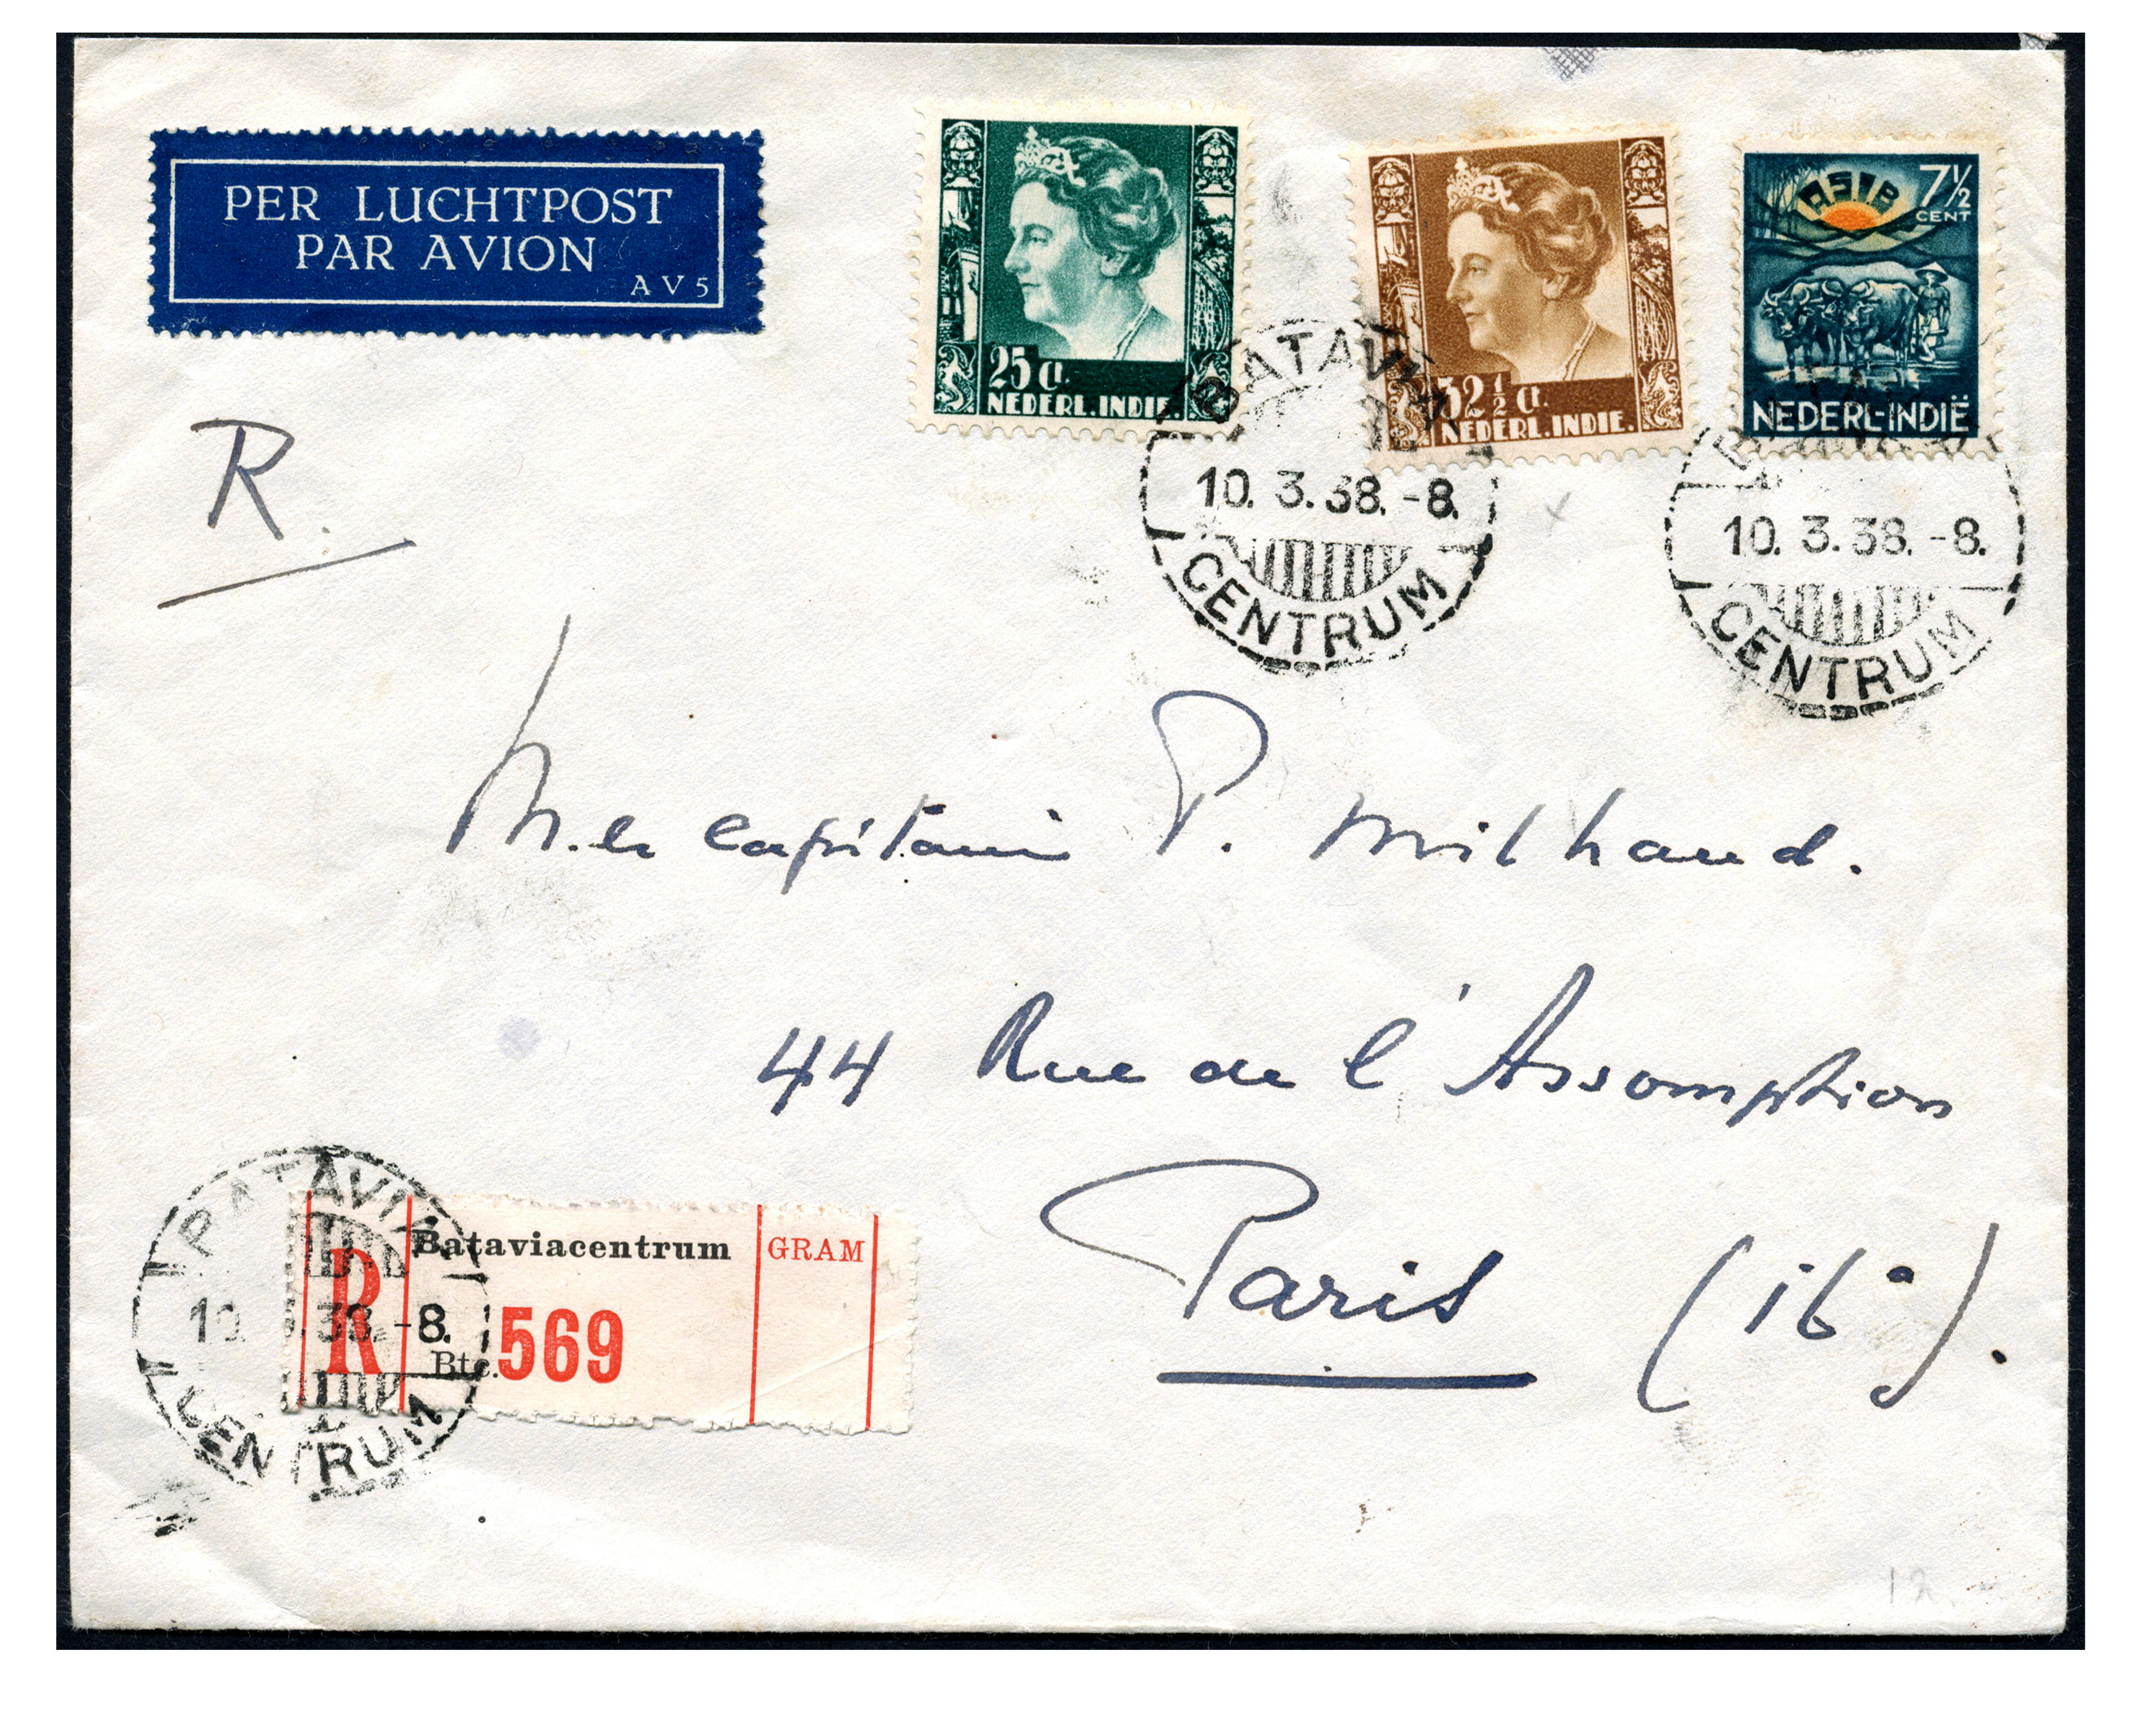 PER LUCHTPOST
PAR AVION
A V 5
25 ct.
NEDERL. INDIE.
32 ½ ct.
NEDERL. INDIE.
ASIB
7½
CENT
NEDERL-INDIË
BATAVIA
10. 3. 38. -8.
CENTRUM
10. 3. 38. -8.
CENTRUM
R.
M. le Capitaine P. Milhaud.
44 Rue de l'Assomption
Paris (16e).
BATAVIA
10. 38. -8.
CENTRUM
R
Bataviacentrum
GRAM
Btc. 569
12